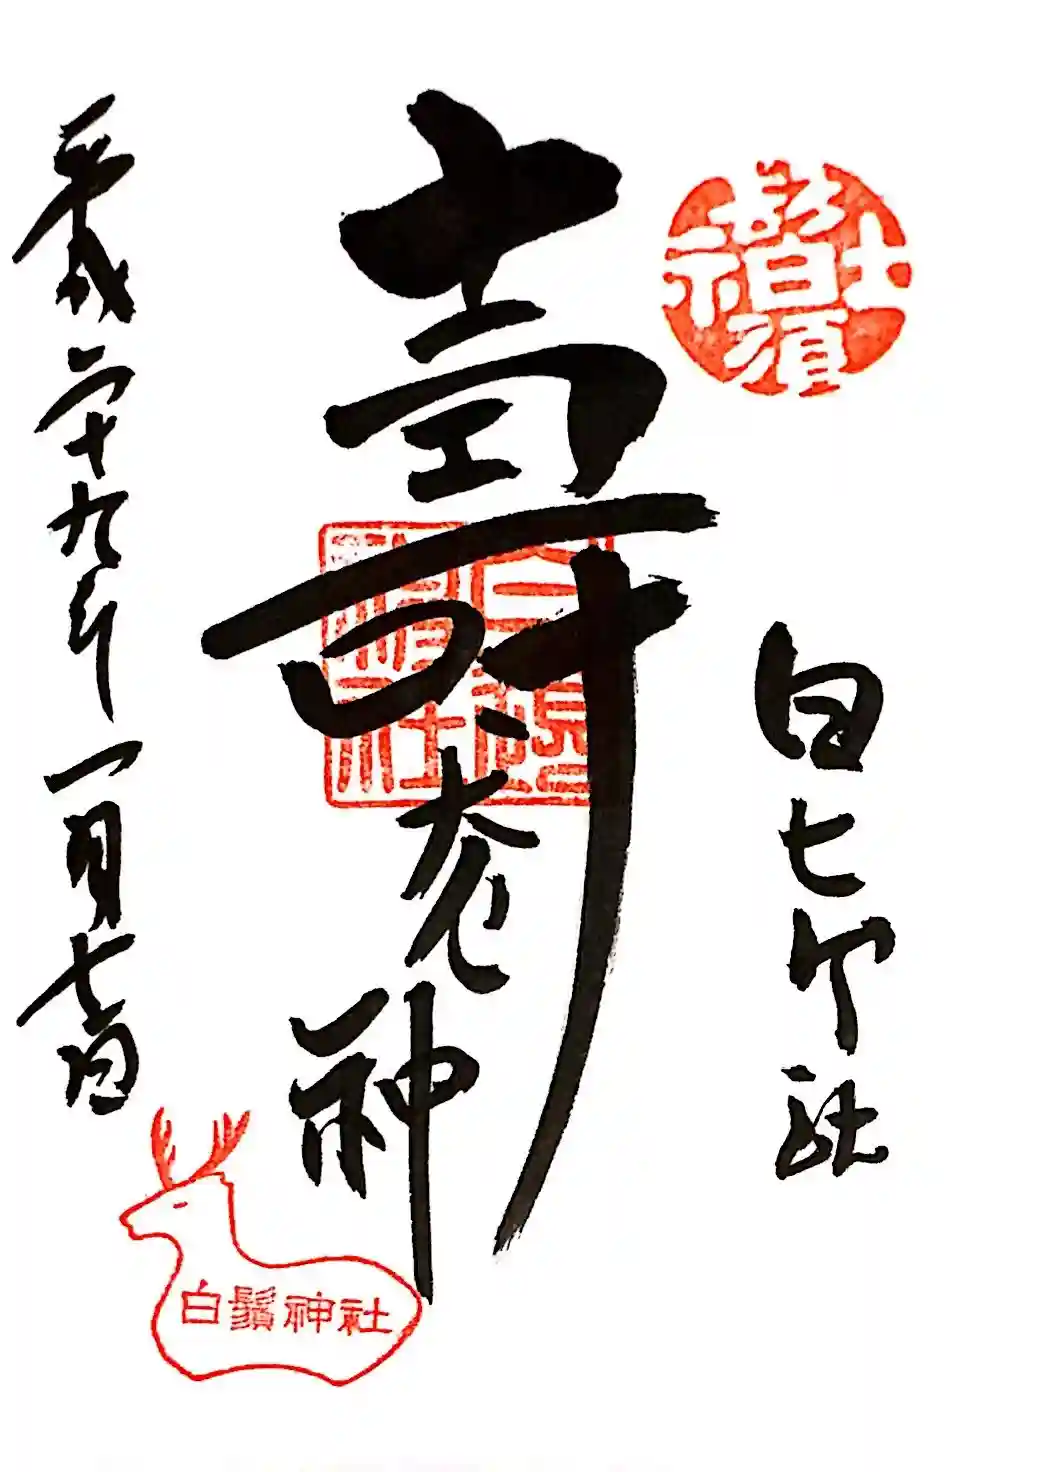 白鬚社
白ヒケ社
壽老神
白鬚神社
平成二十九年一月七日
白鬚神社